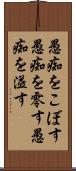 愚痴をこぼす
愚痴を零す愚
痴を溢す